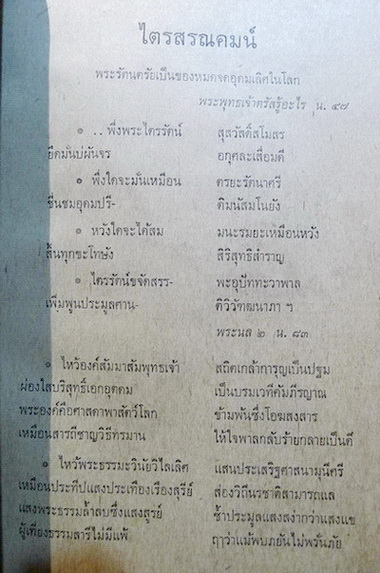 ไตรสรณคมน์
พระรัตนตรัยเป็นของหมดจดอุดมเลิศในโลก
พระพุทธเจ้าตรัสรู้อะไร น. ๔๗
๑ .. พึ่งพระไตรรัตน์ สุสวัสดิ์สโมสร
ยึดมั่นบ่ผันจร อกุศละเสื่อมดี
๑ พึ่งใดจะมั่นเหมือน ตรยะรัตนาศรี
ชื่นชมอุดมปรี- ดิมนัสมโนยัง
๑ หวังใดจะได้สม มนะรมยะเหมือนหวัง
สิ้นทุกขะโทษัง สิริสุทธิสำราญ
๑ ไตรรัตน์ขจัดสรร- พะอุปัททะวาพาล
เพิ่มพูนประมูลศาน- ติวิวัฒนาภา ฯ
พระนล ๒ น. ๘๓
๑ ไหว้องค์สัมมาสัมพุทธเจ้า สถิตเกล้าการุญเป็นปฐม
ผ่องใสบริสุทธิ์เอกอุดดม เป็นบรมเวทีคัมภีรญาณ
พระองค์คือศาสดาพาสัตว์โลก ข้ามพ้นซึ่งโอฆสงสาร
เหมือนสารถีชาญวิธีทรมาน ให้ใจพาลกลับร้ายกลายเป็นดี
๑ ไหว้พระธรรมะวินัยวิไลเลิศ แสนประเสริฐศาสนามุนีศรี
เหมือนประทีปแสงประเทืองเรืองสุรีย์ ส่องวิถีนรชาติสามารถแล
แสงพระธรรมล้ำลบซึ่งแสงสูรย์ ซ้ำประมูลแสงสง่ากว่าแสงแข
ผู้เที่ยงธรรมสารีไม่มีแพ้ ฤๅว่าแม้พบภยันไม่พรั่นภัย